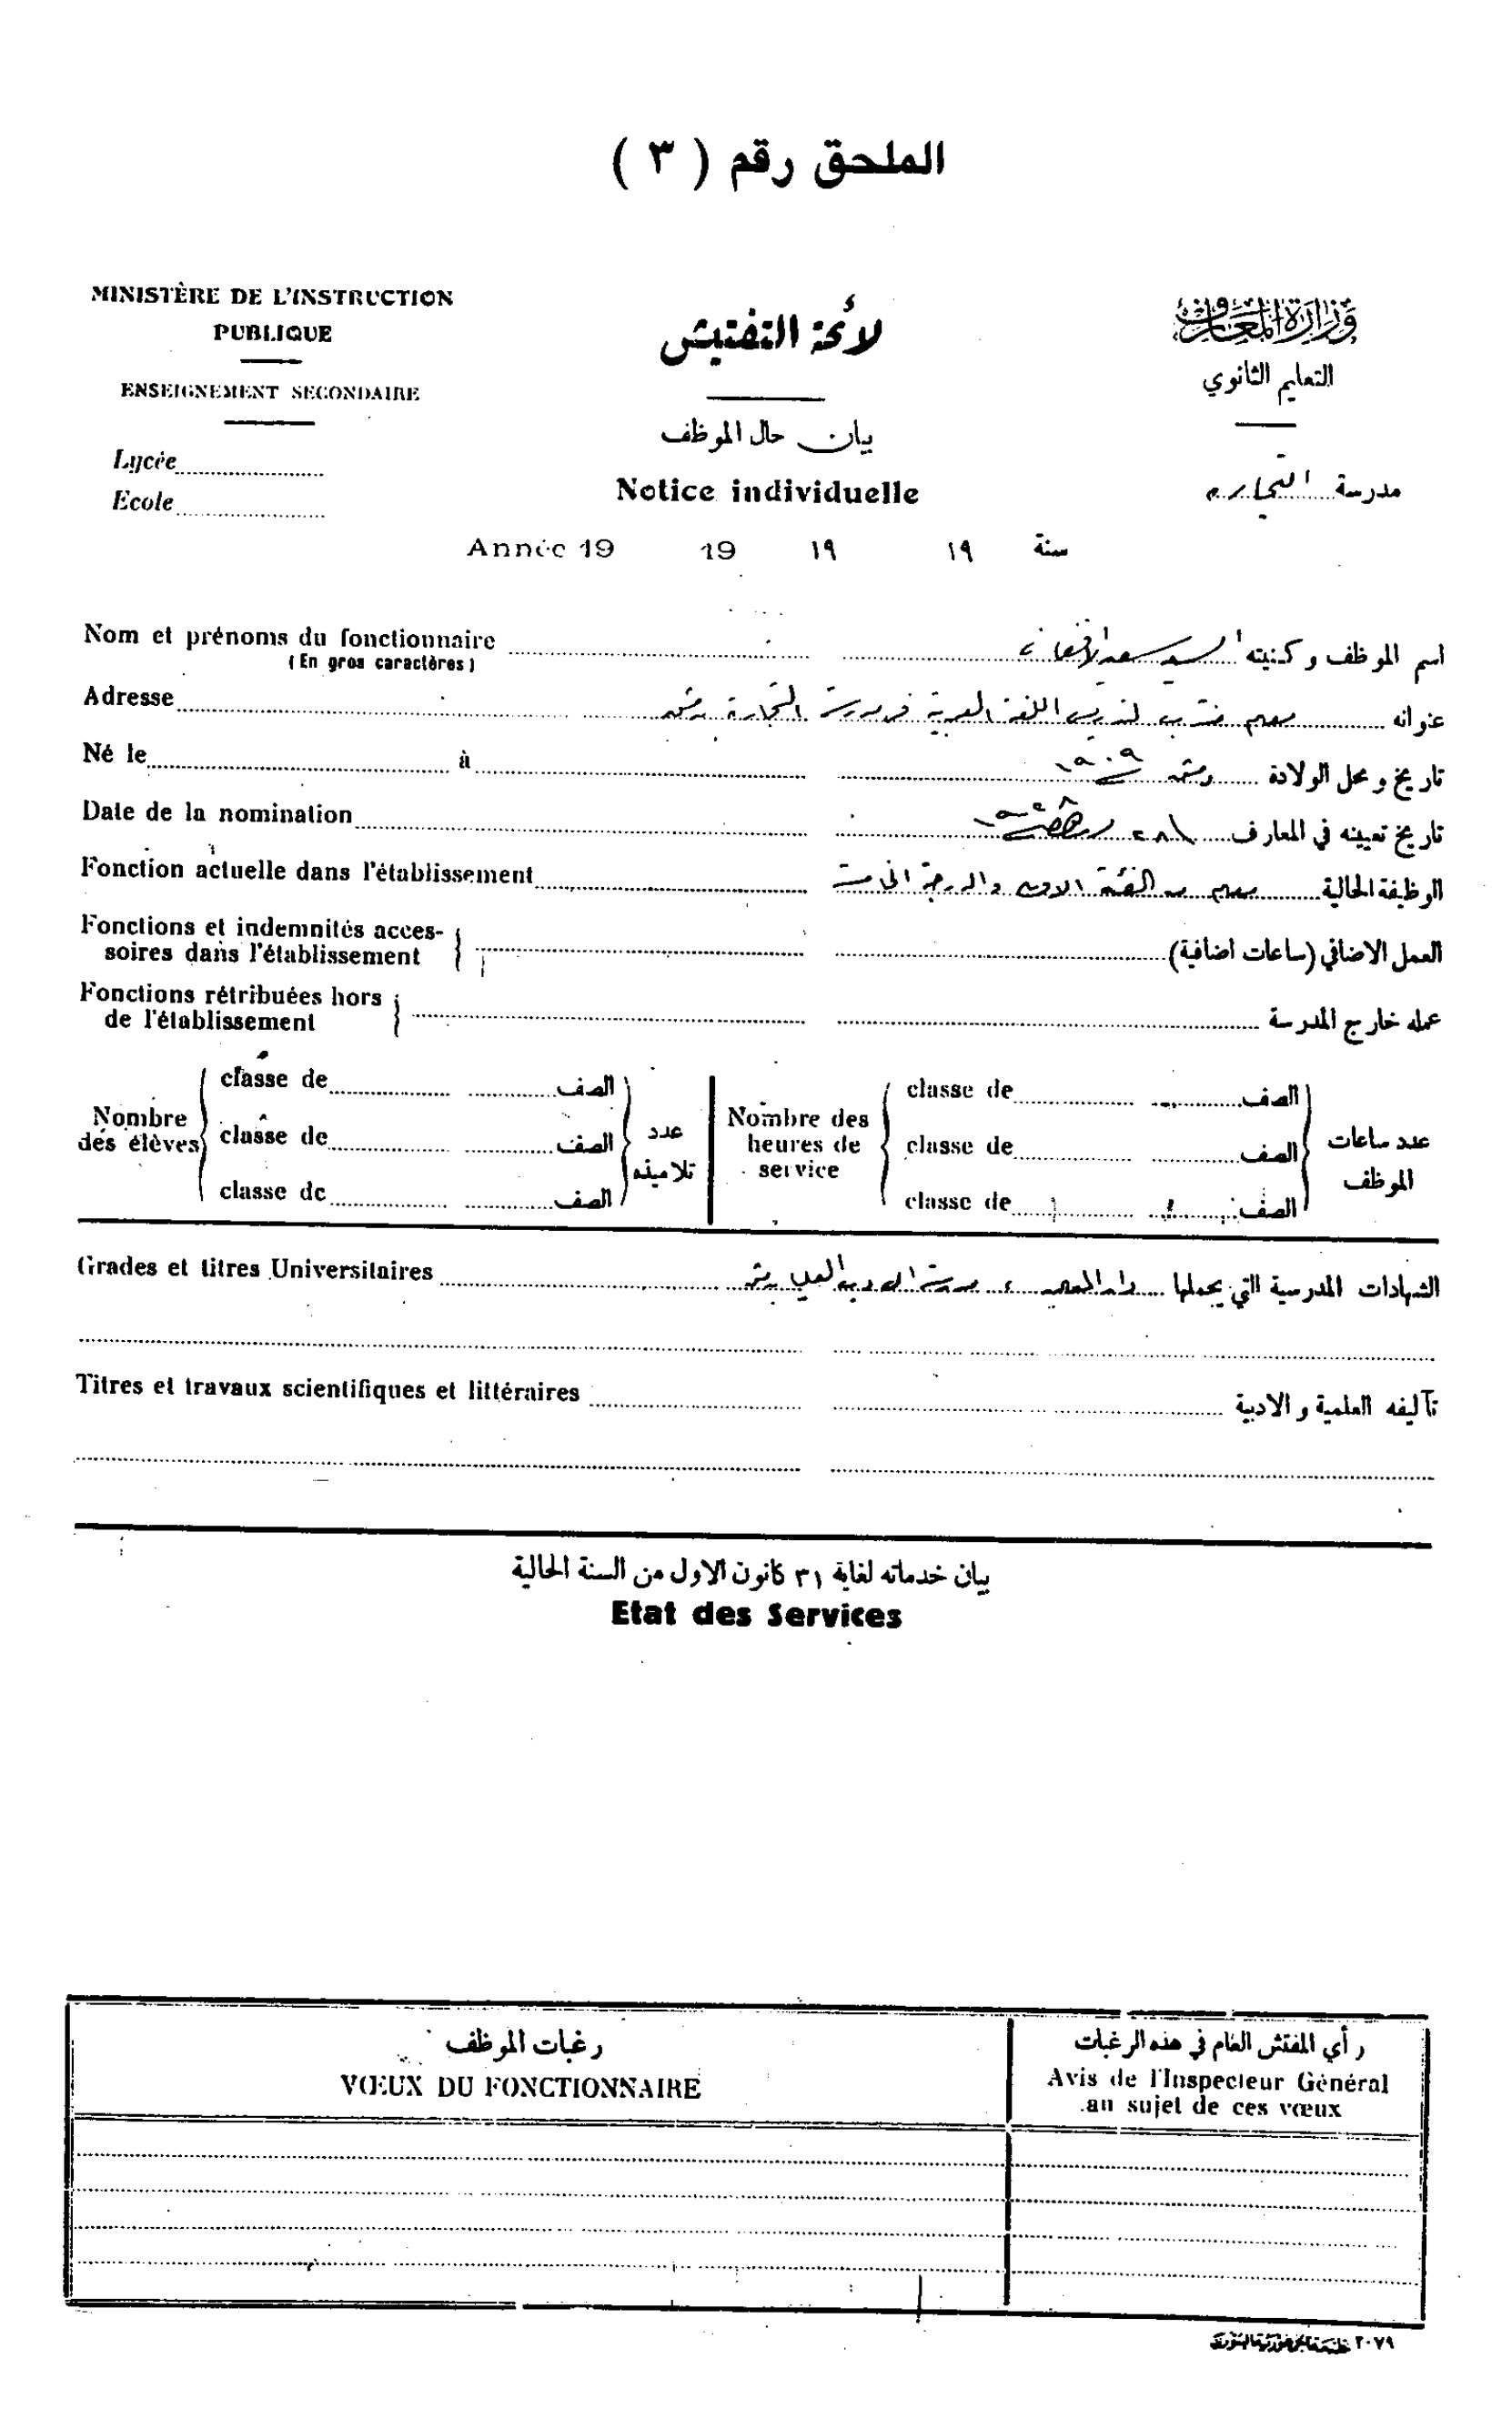 الملحق رقم ( ٣ )
MINISTÈRE DE L'INSTRUCTION
PUBLIQUE
ENSEIGNEMENT SECONDAIRE
Lycée
Ecole
لائحة التفتيش
بيان حال الموظف
Notice individuelle
وزارة المعارف
التعليم الثانوي
مدرسة التجارة
Année 19 19 ١٩ ١٩ سنة
Nom et prénoms du fonctionnaire
(En gros caractères)
اسم الموظف وكنيته السيد سعيد الافغاني
Adresse
عنوانه معلم منتدب لتدريس اللغة العربية في مدرسة التجارة بدمشق
Né le à
تاريخ ومحل الولادة دمشق ١٩٠٩
Date de la nomination
تاريخ تعيينه في المعارف
Fonction actuelle dans l'établissement
الوظيفة الحالية معلم من الفئة الاولى والدرجة الخامسة
Fonctions et indemnités acces-
soires dans l'établissement
العمل الاضافي (ساعات اضافية)
Fonctions rétribuées hors
de l'établissement
عمله خارج المدرسة
Nombre
des élèves
classe de الصف
classe de الصف
classe de الصف
عدد
تلاميذه
Nombre des
heures de
service
classe de الصف
classe de الصف
classe de الصف
عدد ساعات
الموظف
Grades et titres Universitaires
الشهادات المدرسية التي يحملها دار المعلمين مدرسة الادب العليا بدمشق
Titres et travaux scientifiques et littéraires
تآليفه العلمية والادبية
بيان خدماته لغاية ٣١ كانون الاول من السنة الحالية
Etat des Services
رغبات الموظف
VŒUX DU FONCTIONNAIRE
رأي المفتش العام في هذه الرغبات
Avis de l'Inspecteur Général
au sujet de ces vœux
٢٠٧٩ مطبعة الجمهورية السورية